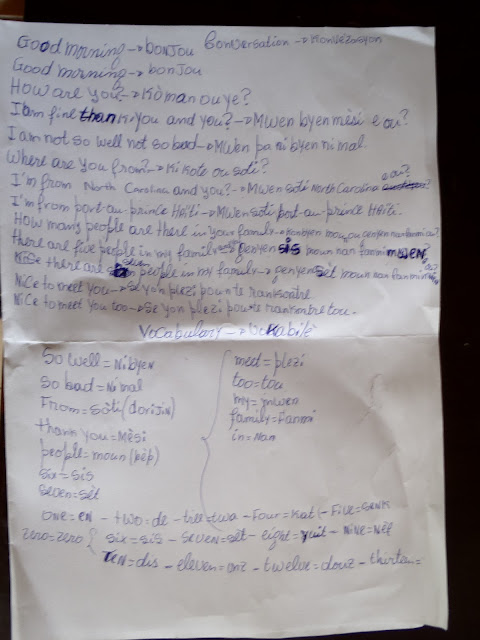 Good morning → bonJou Conversation → Konvèzasyon
Good morning → bonJou
How are you? → Kòman ou ye?
I am fine thank you and you? → Mwen byen mèsi e ou?
I am not so well not so bad → Mwen pa ni byen ni mal.
Where are you from? → Ki kote ou soti?
I'm from North Carolina and you? → Mwen soti North Carolina e ou?
I'm from port-au-prince Haïti → Mwen soti port-au-prince Haïti.
How many people are there in your family → Konbyen moun ou genyen nan fanmi ou?
there are five people in my family → genyen sis moun nan fanmi mwen?
Nice there are seven people in my family → genyen sèt moun nan fanmi
Nice to meet you → Se yon plezi pou te rankontre.
Nice to meet you too → Se yon plezi pou te rankontre tou.
Vocabulary → Vokabilè
So well = Ni byen
So bad = Ni mal
From = sòti (dorijin)
thank you = Mèsi
people = moun (pèp)
six = sis
seven = sèt
meet = plezi
too = tou
my = mwen
family = Fanmi
in = Nan
one = en - two = de - tree = twa - Four = kat - Five = senk
zero = zero { six = sis - seven = sèt - eight = yuit - nine = nèf
Ten = dis - eleven = onz - twelve = douz - thirteen =